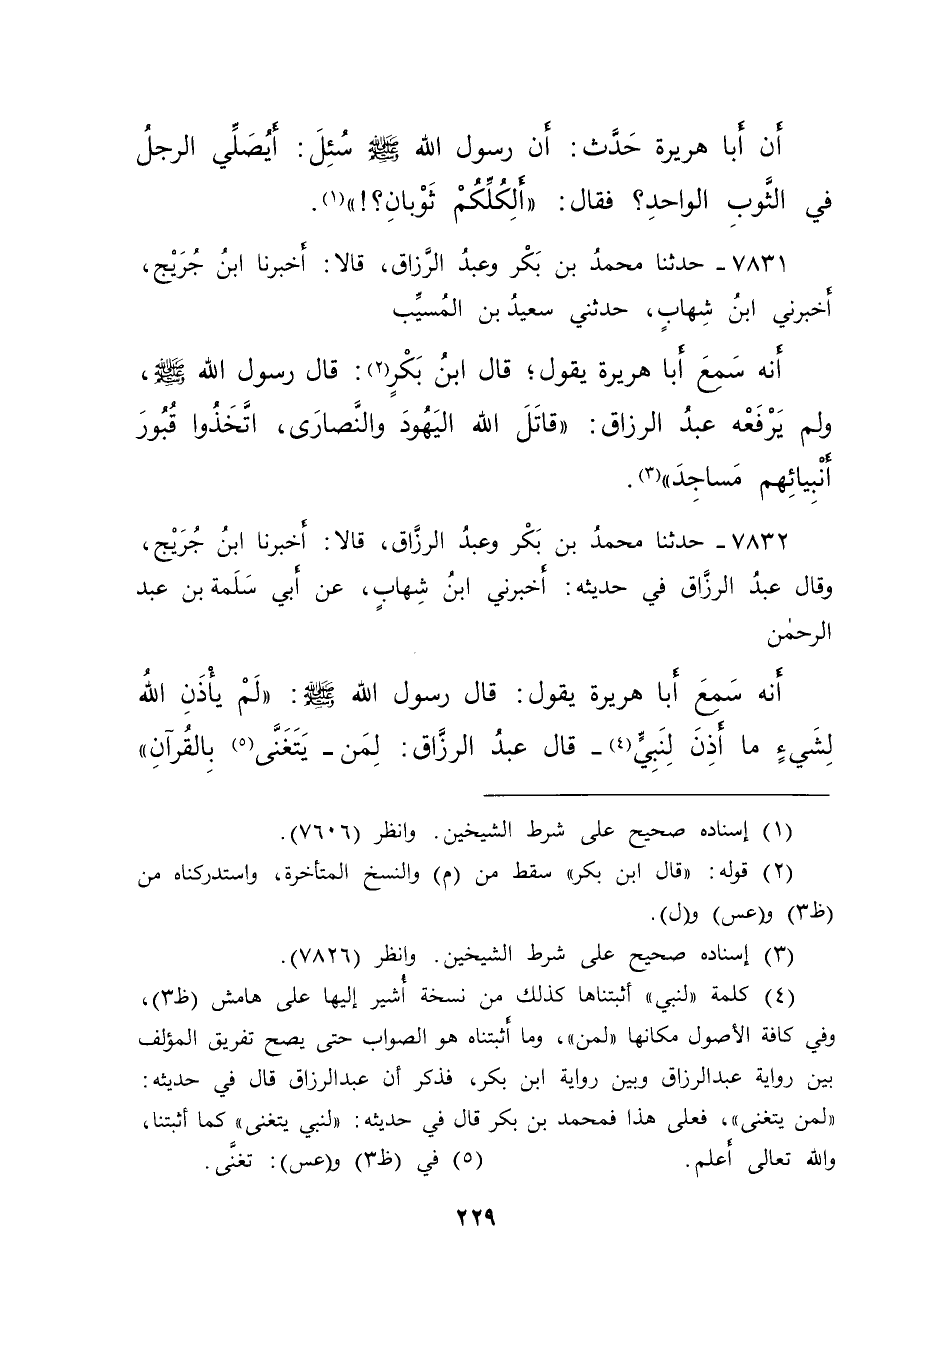 أَن أَبا هريرة حَدَّث: أَن رسول الله ﷺ سُئِلَ: أَيُصَلِّي الرجلُ
في الثَّوبِ الواحدِ؟ فقال: «أَلِكُلِّكُمْ ثَوْبانِ؟!»(١).
٧٨٣١ـ حدثنا محمدُ بن بَكْر وعبدُ الرَّزاق، قالا: أَخبرنا ابنُ جُرَيْج،
أَخبرني ابنُ شِهابٍ، حدثني سعيدُ بن المُسيِّب
أَنه سَمِعَ أَبا هريرة يقول؛ قال ابنُ بَكْرٍ(٢): قال رسول الله ﷺ،
ولم يَرْفَعْه عبدُ الرزاق: «قاتَلَ الله اليَهُودَ والنَّصارَى، اتَّخَذُوا قُبُورَ
أَنْبِيائِهم مَساجِدَ»(٣).
٧٨٣٢ـ حدثنا محمدُ بن بَكْر وعبدُ الرزَّاق، قالا: أَخبرنا ابنُ جُرَيْج،
وقال عبدُ الرزَّاق في حديثه: أَخبرني ابنُ شِهابٍ، عن أَبي سَلَمة بن عبد
الرحمٰن
أَنه سَمِعَ أَبا هريرة يقول: قال رسول الله ﷺ: «لَمْ يأْذَنِ اللهُ
لِشَيءٍ ما أَذِنَ لِنَبِيٍّ(٤) ـ قال عبدُ الرزَّاق: لِمَن ـ يَتَغَنَّى(٥) بِالقُرآنِ»
(١) إسناده صحيح على شرط الشيخين. وانظر (٧٦٠٦).
(٢) قوله: «قال ابن بكر» سقط من (م) والنسخ المتأخرة، واستدركناه من
(ظ٣) و(عس) و(ل).
(٣) إسناده صحيح على شرط الشيخين. وانظر (٧٨٢٦).
(٤) كلمة «لنبي» أثبتناها كذلك من نسخة أُشير إليها على هامش (ظ٣)،
وفي كافة الأصول مكانها «لمن»، وما أَثبتناه هو الصواب حتى يصح تفريق المؤلف
بين رواية عبدالرزاق وبين رواية ابن بكر، فذكر أن عبدالرزاق قال في حديثه:
«لمن يتغنى»، فعلى هذا فمحمد بن بكر قال في حديثه: «لنبي يتغنى» كما أثبتنا،
والله تعالى أَعلم. (٥) في (ظ٣) و(عس): تغنَّى.
٢٢٩